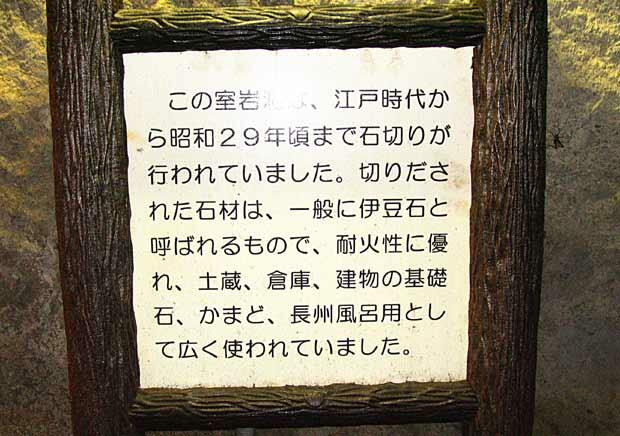 この室岩洞は、江戸時代か
ら昭和２９年頃まで石切りが
行われていました。切りださ
れた石材は、一般に伊豆石と
呼ばれるもので、耐火性に優
れ、土蔵、倉庫、建物の基礎
石、かまど、長州風呂用とし
て広く使われていました。